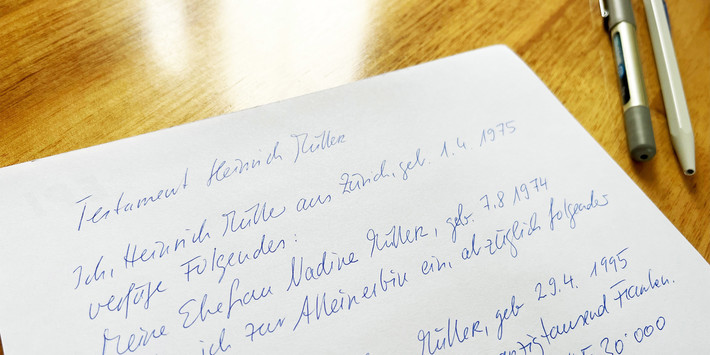 Testament Heinrich Müller
Ich, Heinrich Müller aus Zürich, geb. 1.4. 1975
verfüge Folgendes:
Meine Ehefrau Nadine Müller, geb. 7.8 1974
ich zur Alleinerbin ein, abzüglich folgender
Müller, geb 29.4. 1995
Franken.
30'000